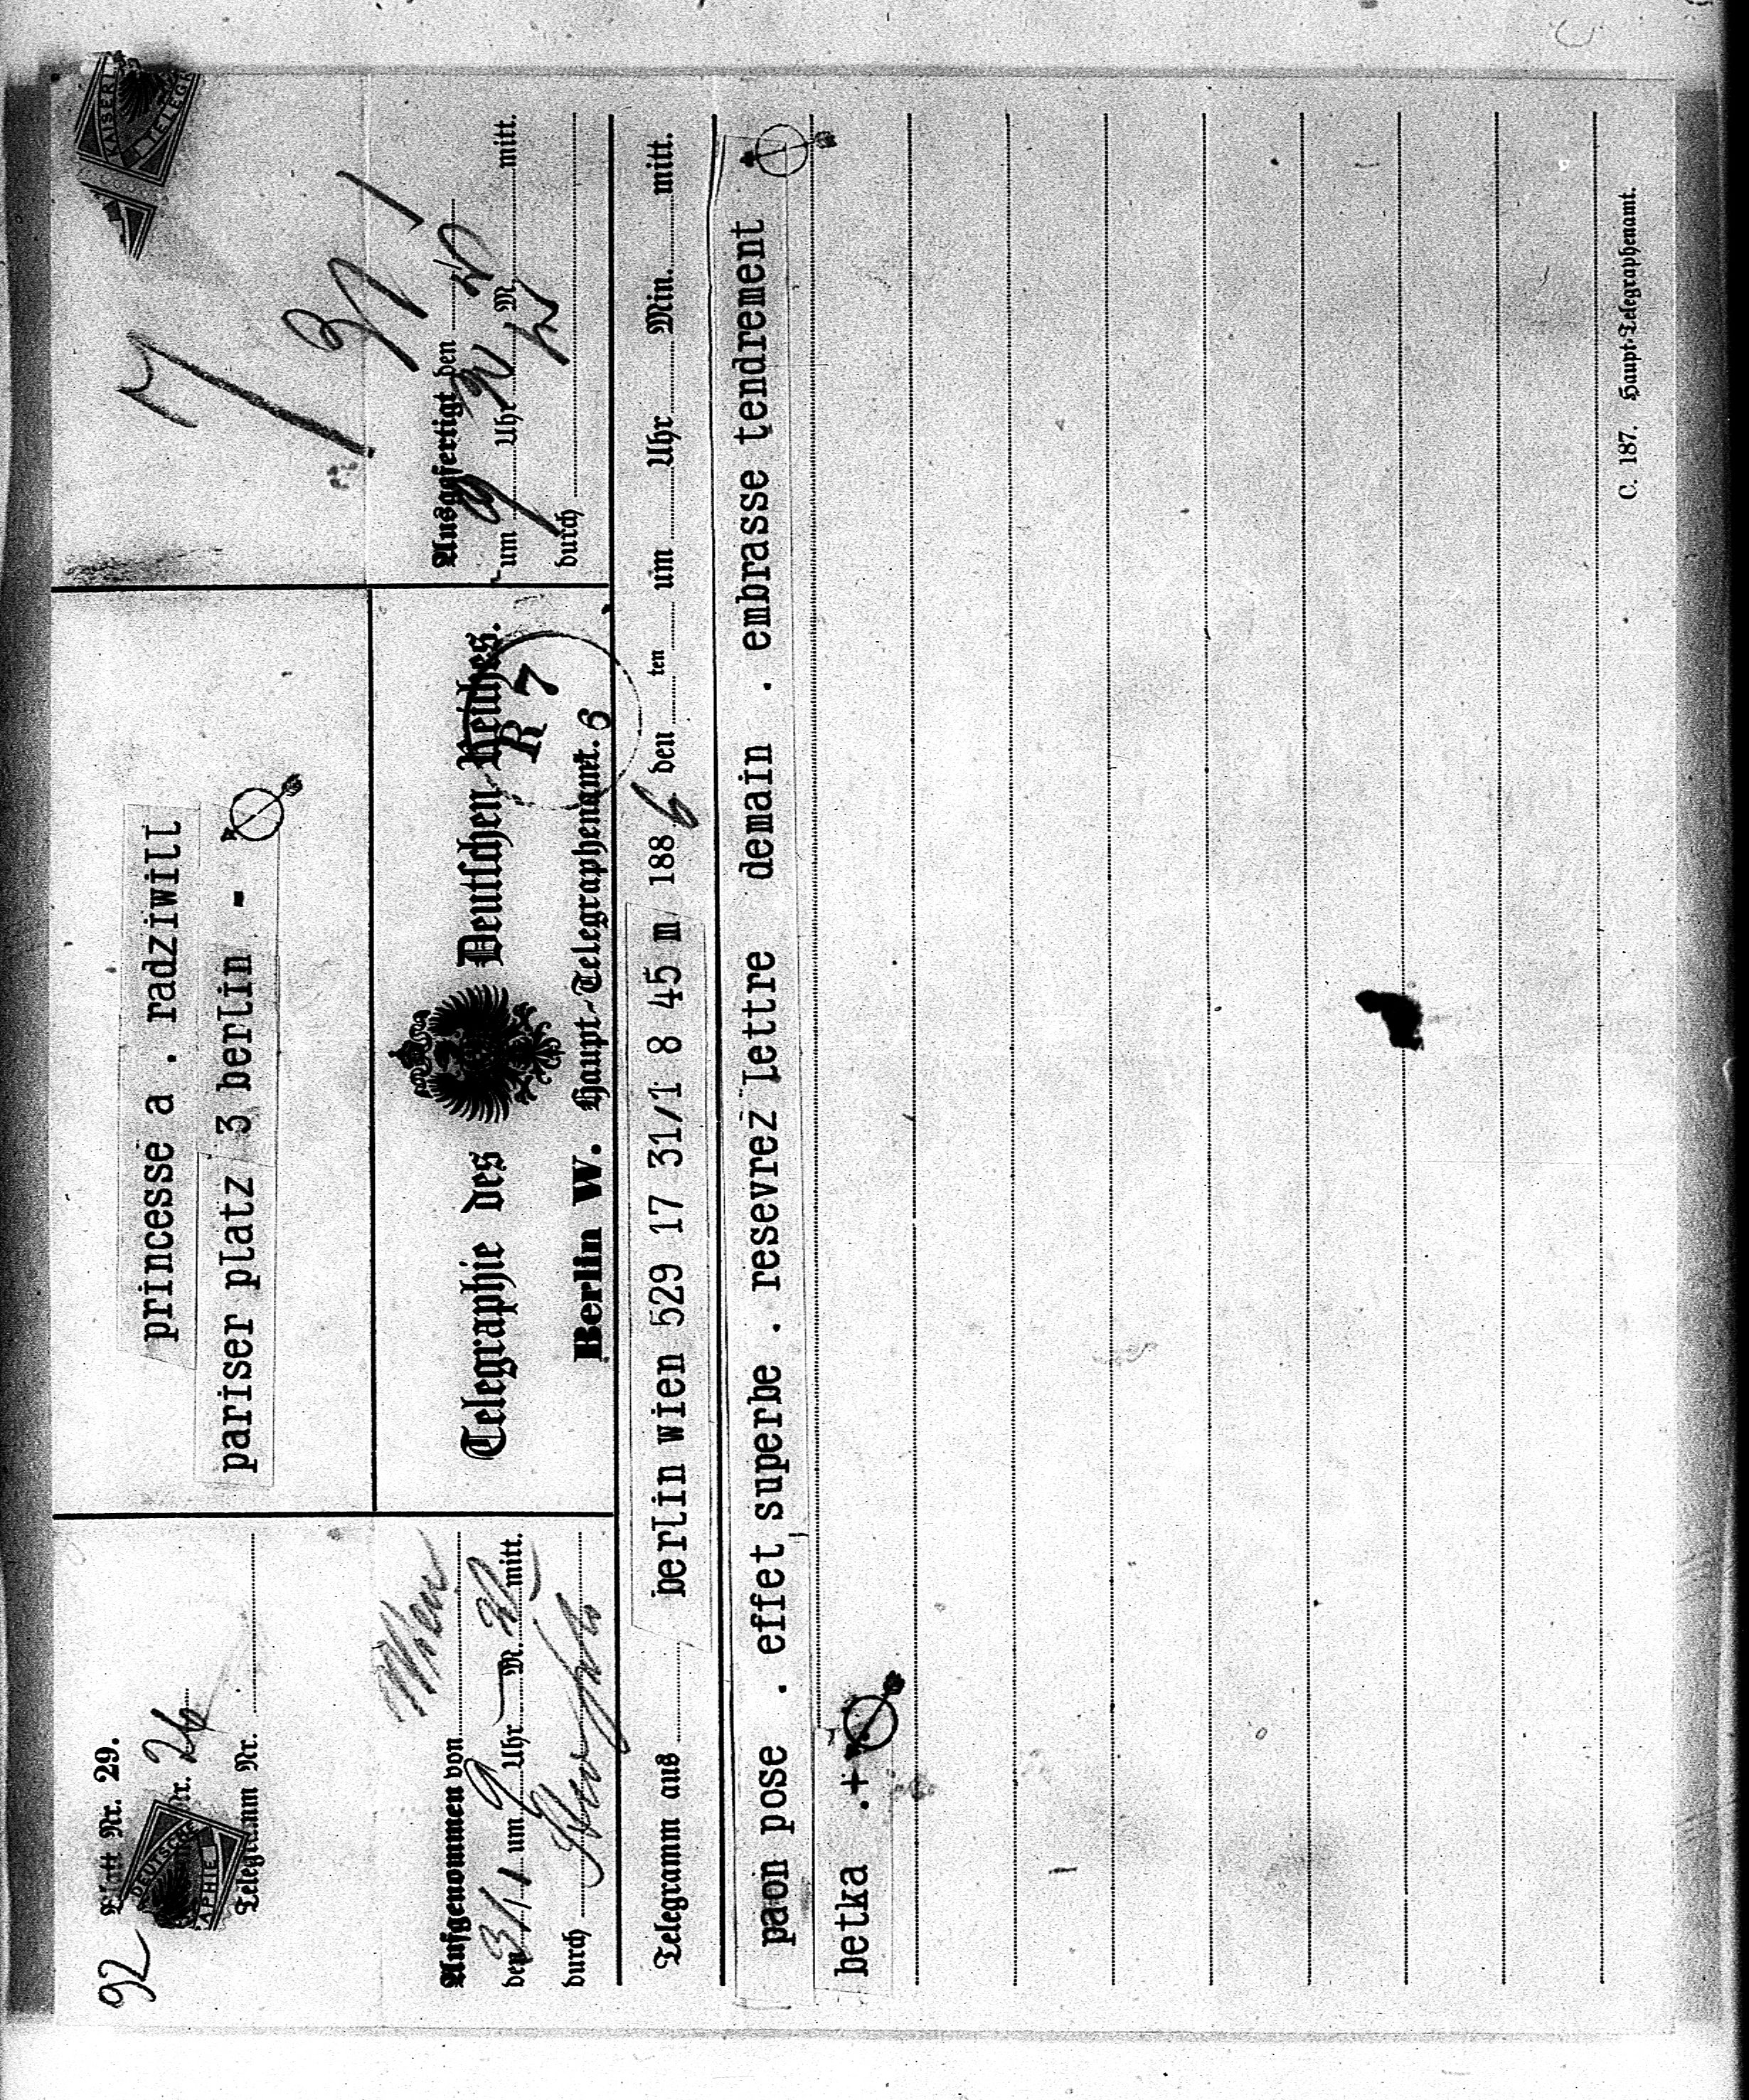 92
Blatt Nr. 29.
Nr. 26
Telegramm Nr.
DEUTSCHE
APHIE
princesse a . radziwill
pariser platz 3 berlin -
KAISERL
TELEGR
7 31/1
Aufgenommen von Wien
den 31/1 um 9 Uhr M. mitt.
durch
Telegraphie des Deutschen Reiches.
Berlin W. Haupt-Telegraphenamt.
R 7
6
Ausgefertigt den
um 9 Uhr M. mitt.
durch
Telegramm aus berlin wien 529 17 31/1 8 45 m 1886 den ten um Uhr Min. mitt.
paon pose . effet superbe . resevrez lettre demain . embrasse tendrement
betka .+
C. 187. Haupt-Telegraphenamt.